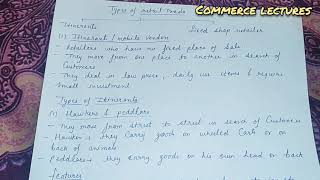 Types of retail trade
COMMERCE LECTURES
Itinerants Fixed shop retailer
(1) Itinerant / mobile vendor
- Retailers who have no fixed place of sale
- They move from one place to another in search of
Customers
- They deal in low price, daily use items & require
Small investment
Types of Itinerants
(1) Hawkers & peddlars
- They move from street to street in search of Customers
- Hawkers → they carry goods on wheeled Carts or on
back of animals
- Peddlars → they carry goods on his own head or back
features